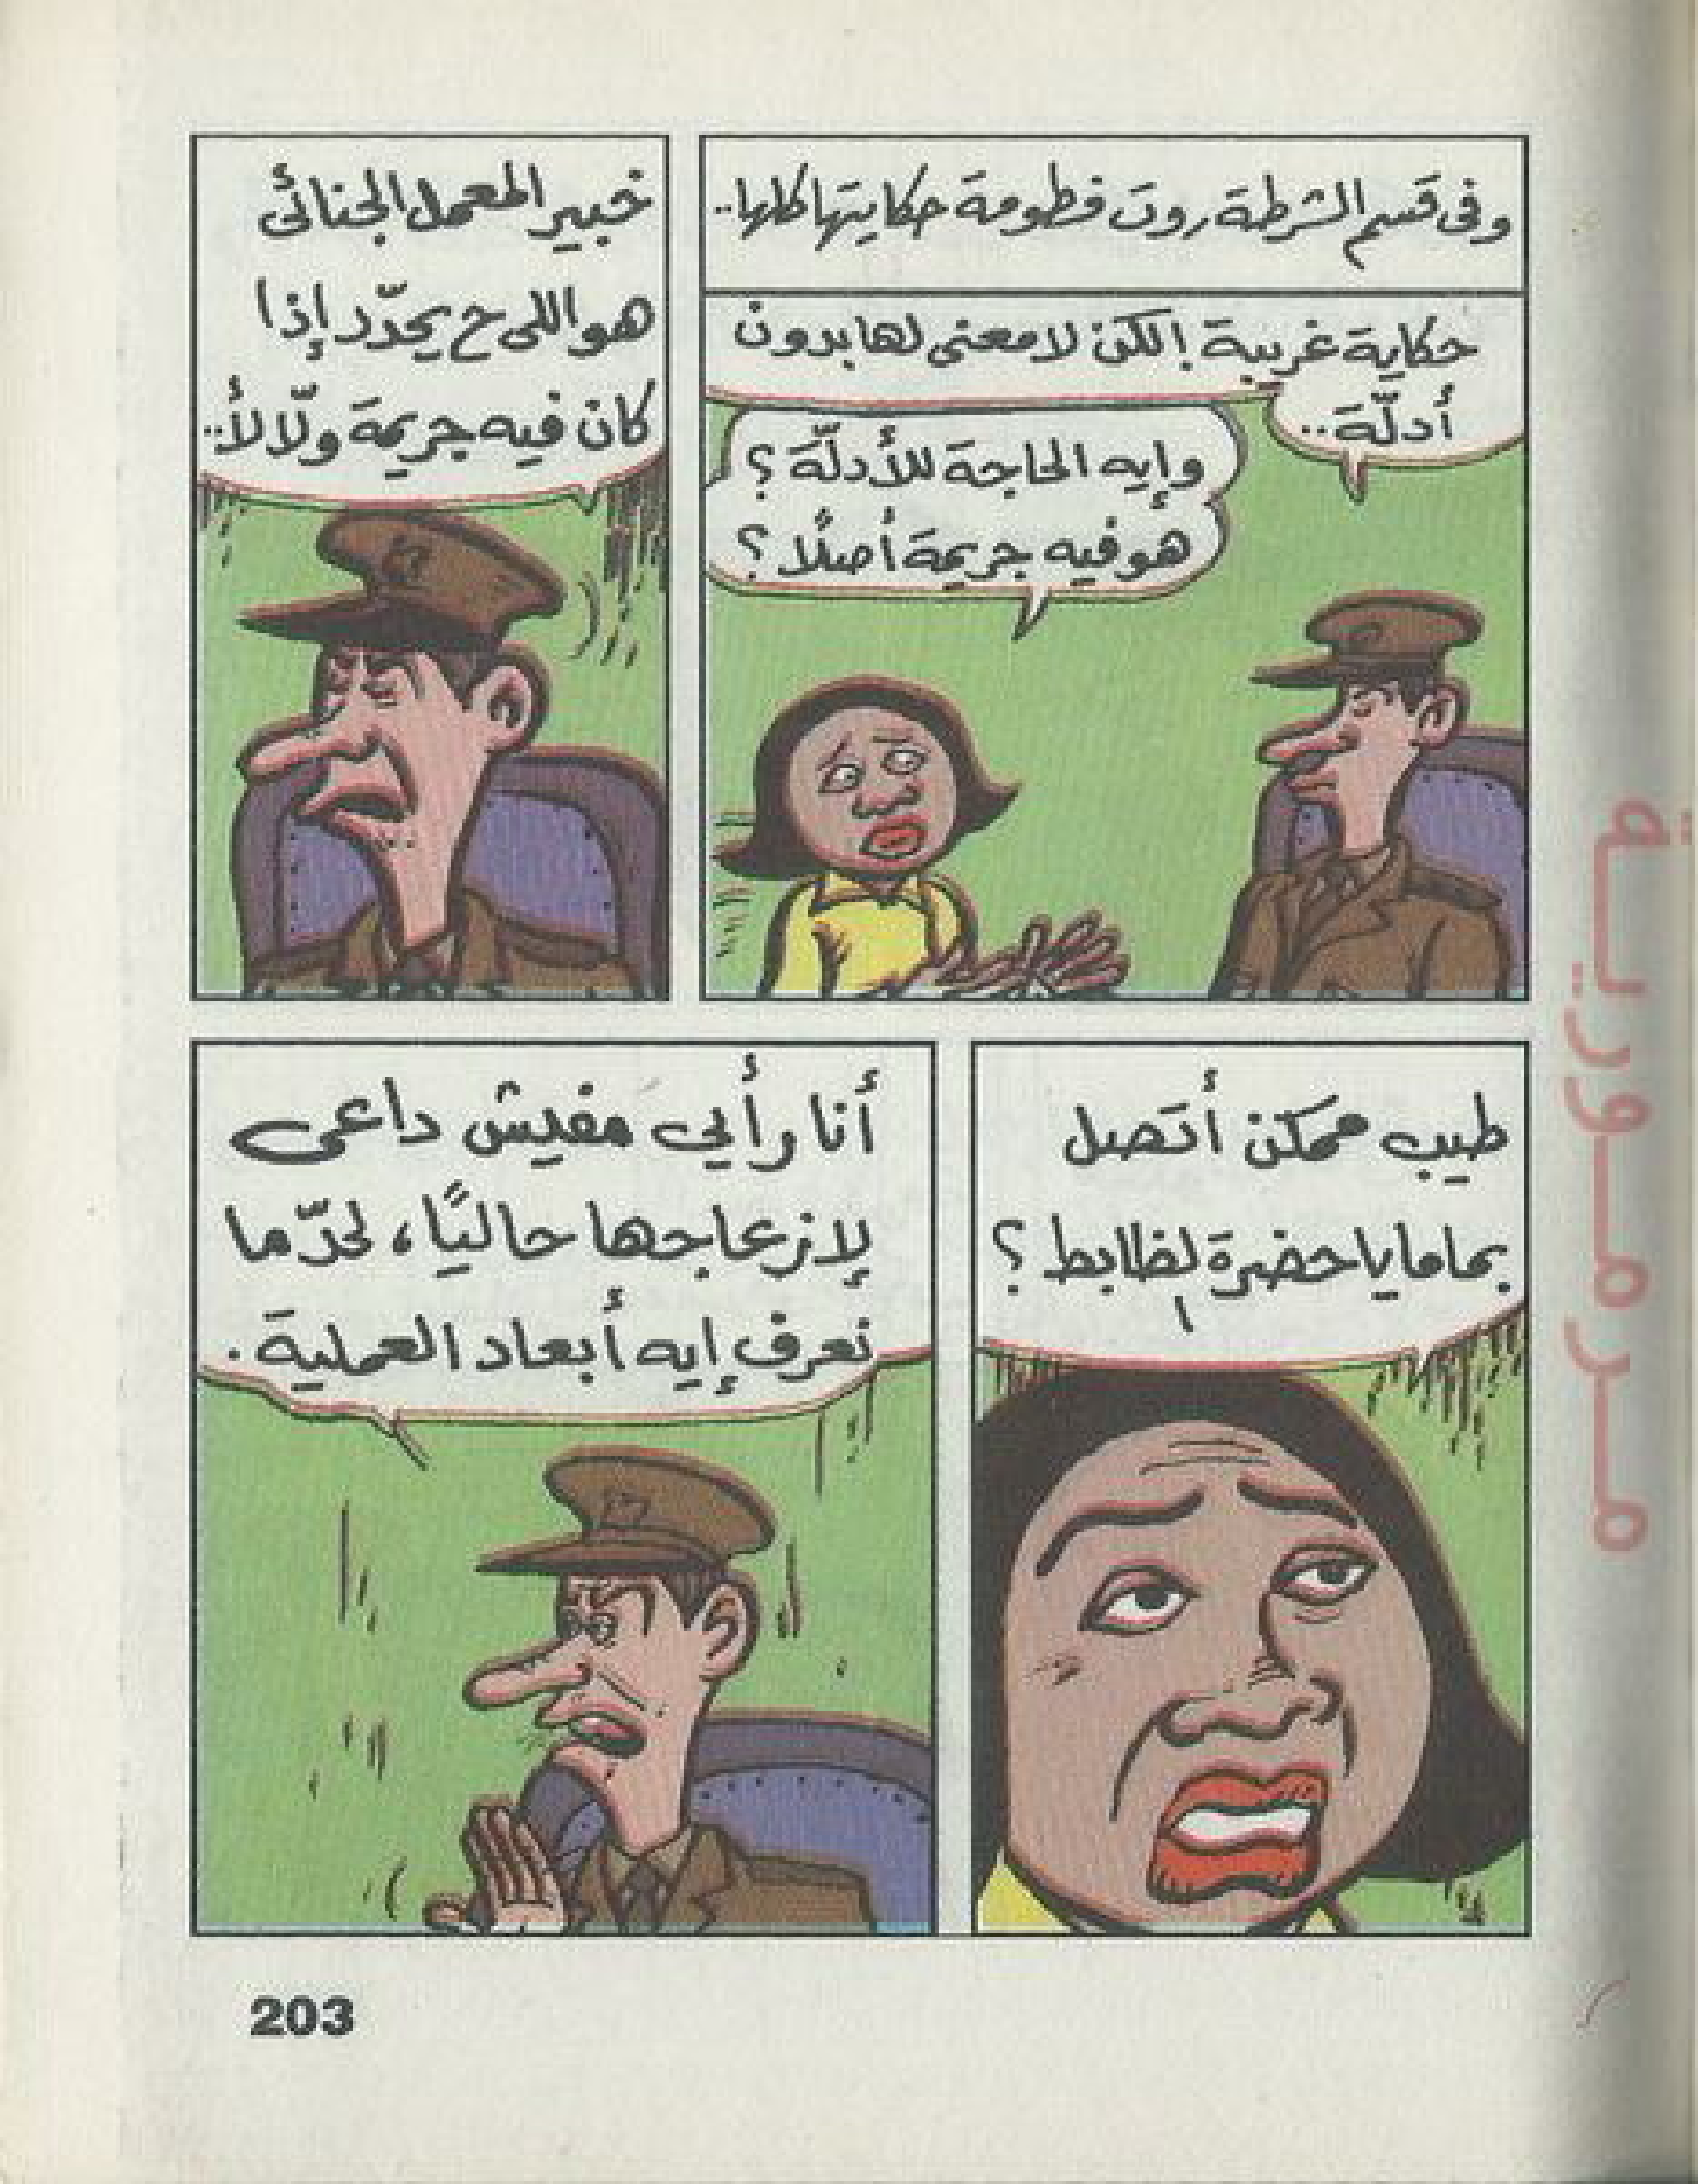 وفى قسم الشرطة روت فطومة حكايتها كلها..
حكاية غريبة! لكن لا معنى لها بدون
أدلّة..
وإيه الحاجة للأدلّة؟
هو فيه جريمة أصلًا؟
خبير المعمل الجنائى
هو اللى ح يحدّد إذا
كان فيه جريمة ولّا لأ..
طيب ممكن أتصل
بماما يا حضرة لظابط؟
ا
أنا رأيي مفيش داعى
لإزعاجها حاليًا، لحدّ ما
نعرف إيه أبعاد العملية.
203
مرمورية